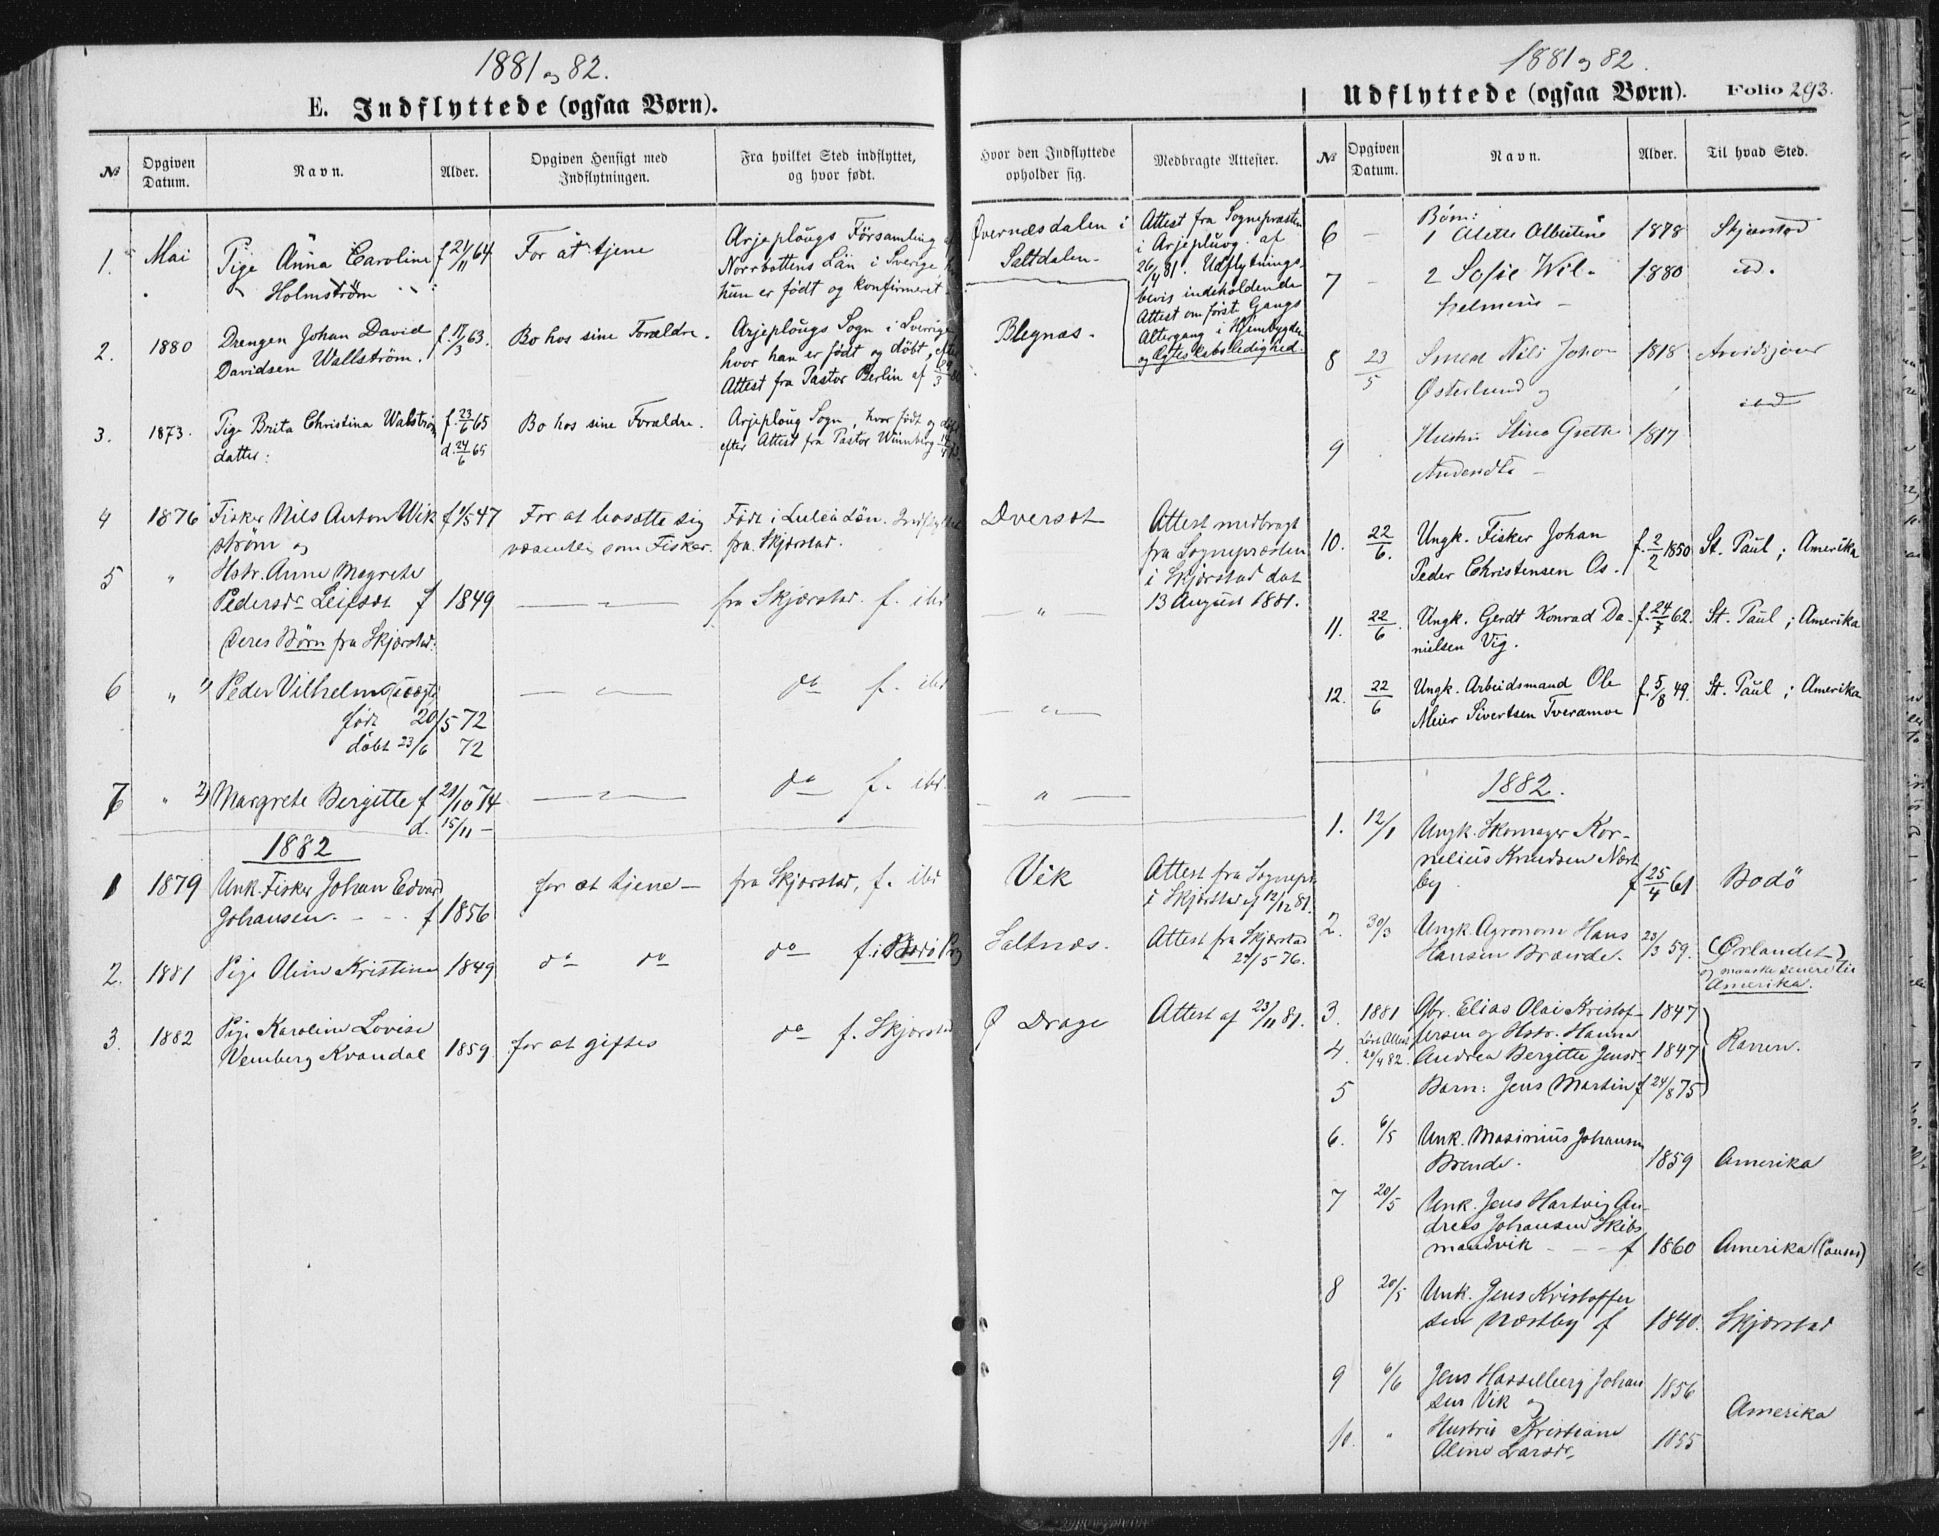 1881 og 82.
E. Indflyttede (ogsaa Børn).
№ Opgiven Datum. Navn. Alder. Opgiven Hensigt med Indflytningen. Fra hvilket Sted indflyttet, og hvor født.
1. Mai Pige Anna Caroline f 21/11 64 For at tjene Arjeplougs Församling
Holmström Norrbottens Län i Sverige,
hun er født og konfirmeret
2. 1880 Drengen Johan David f. 17/3 63. Bo hos sine Forældre. Arjeplougs Sogn i Sverrige
Davidsen Wallström. hvor han er født og döbt,
Attest fra Pastor Berlin af
3. 1873. Pige Brita Christina f. 23/6 65 Bo hos sine Forældre. Arjeploug Sogn, hvor født og
datter: d. 24/6 65 efter Attest fra Pastor
4 1876 Fisker Nils Anton Wik f 1/5 47 For at bosætte sig Født i Luleå Län.
strøm og som Fisker. fra Skjærstad.
5 " Hstr. Anne Magrete
Pedersdr Leifsdt f 1849 — " — fra Skjærstad. f. ibd
Deres Børn fra Skjærstad.
6 " 1) Peder Vilhelm do f. ibd
født 20/5 72
döbt 23/6 72
7 " 2) Margrete Bergitte f 20/10 74 — " — do f. ibd.
d. 15/11 —
1882
1 1879 Unk. Fisker Johan Edvard for at tjene — fra Skjærstad, f. ibd
Johansen. f 1856
2. 1881 Pige Oline Kristine 1849 do do do f. i Bodö
3. 1882 Pige Karoline Lovise do f. Skjærstad
Wenberg Kvandal 1859. for at giftes
1881 og 82.
Udflyttede (ogsaa Børn). Folio 293.
Hvor den Indflyttede opholder sig. Medbragte Attester. № Opgiven Datum. Navn. Alder. Til hvad Sted.
Øvernæsdalen i Attest fra Sognepræsten
Saltdalen. i Arjeploug af
26/4 81. Udflytnings-
bevis indeholdende
Attest om første Gangs
Blegnæs. Altergang i Hjembygden
og Ægteskabsledighed.
Dverset Attest medbragt
fra Sognepræsten
i Skjærstad dat
— " — 13 August 1881.
— " —
— " —
Vik Attest fra Sognepr
i Skjærstad af 12/12 81.
Saltnæs. Attest fra Skjærstad
29/5 76.
Ø Drage Attest af 23/11 81.
Børn:
6 — 1 Alette Albertine 1878 Skjærstad
7 — 2 Sofie Wil- 1880 ibd.
helmine —
8 23/5 Smed Nils Johan 1818 Arvidsjaur
Østerlund og
ibd
9 Hustru Stina Greta 1817
Andersdtr —
10. 22/6. Ungk. Fisker Johan f. 2/2 1850 St. Paul; Amerika
Peder Christensen Os.
11. 22/6. Ungk. Gerdt Konrad Da- f. 24/7 62. St. Paul; Amerika
nielsen Vig.
12. 22/6 Ungk. Arbeidsmand Ole f. 5/8 49. St. Paul; Amerika
Meier Sivertsen Tveramoe
1882.
1. 12/1 Ungk. Skomager Kor-
nelius Knudsen Næst
by. f 25/4 61 Bodö
2. 30/3 Ungk. Agronom Hans 23/3 59. (Ørlandet)
Hansen Brænde. og maaske senere til
Amerika.
3. 1881 Gbr. Elias Olai Kristof- 1847
fersen og Hstr. Hanna
4. 20/4 82. Andrea Bergitte Jensdr 1847 Ranen.
5 Barn: Jens Martin f 24/8 75
6. 6/5 Unk. Masinius Johansen
Brende. 1859 Amerika
7 20/5 Unk. Jens Hartvig An-
dreas Johansen Skibs
mandvik — f 1860 Amerika
8 20/5 Unk. Jens Kristoffer
sen Næstby f 1840. Skjærstad
9 6/6 Jens Hasselberg Johan 1856
sen Vik og Amerika
10. " Hustru Kristiane
Oline Larsdr. 1855